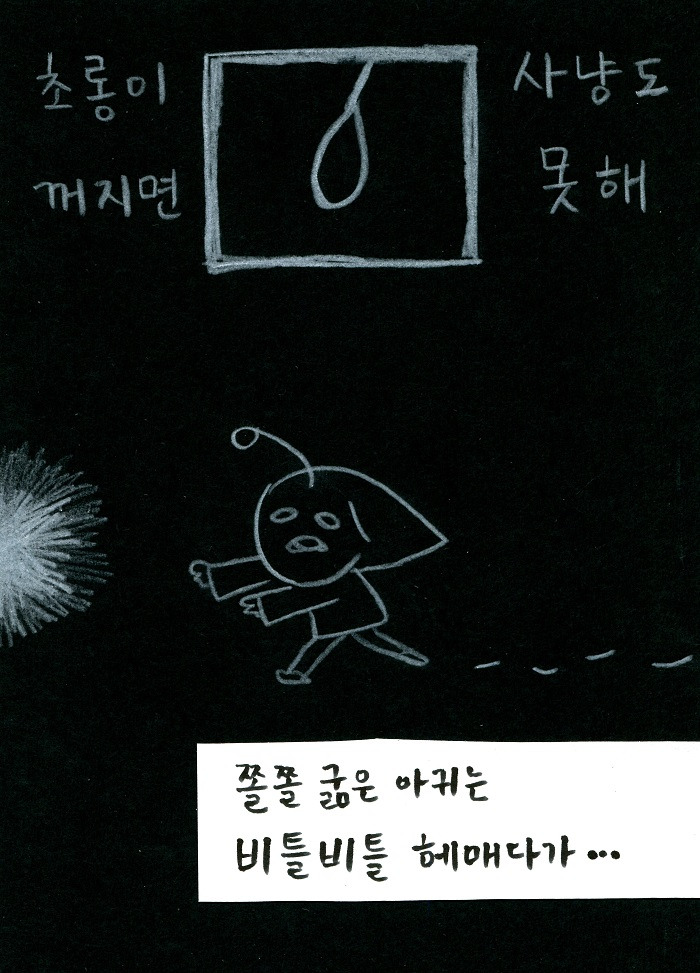 초롱이
꺼지면
사냥도
못해
쫄쫄 굶은 아귀는
비틀비틀 헤매다가...